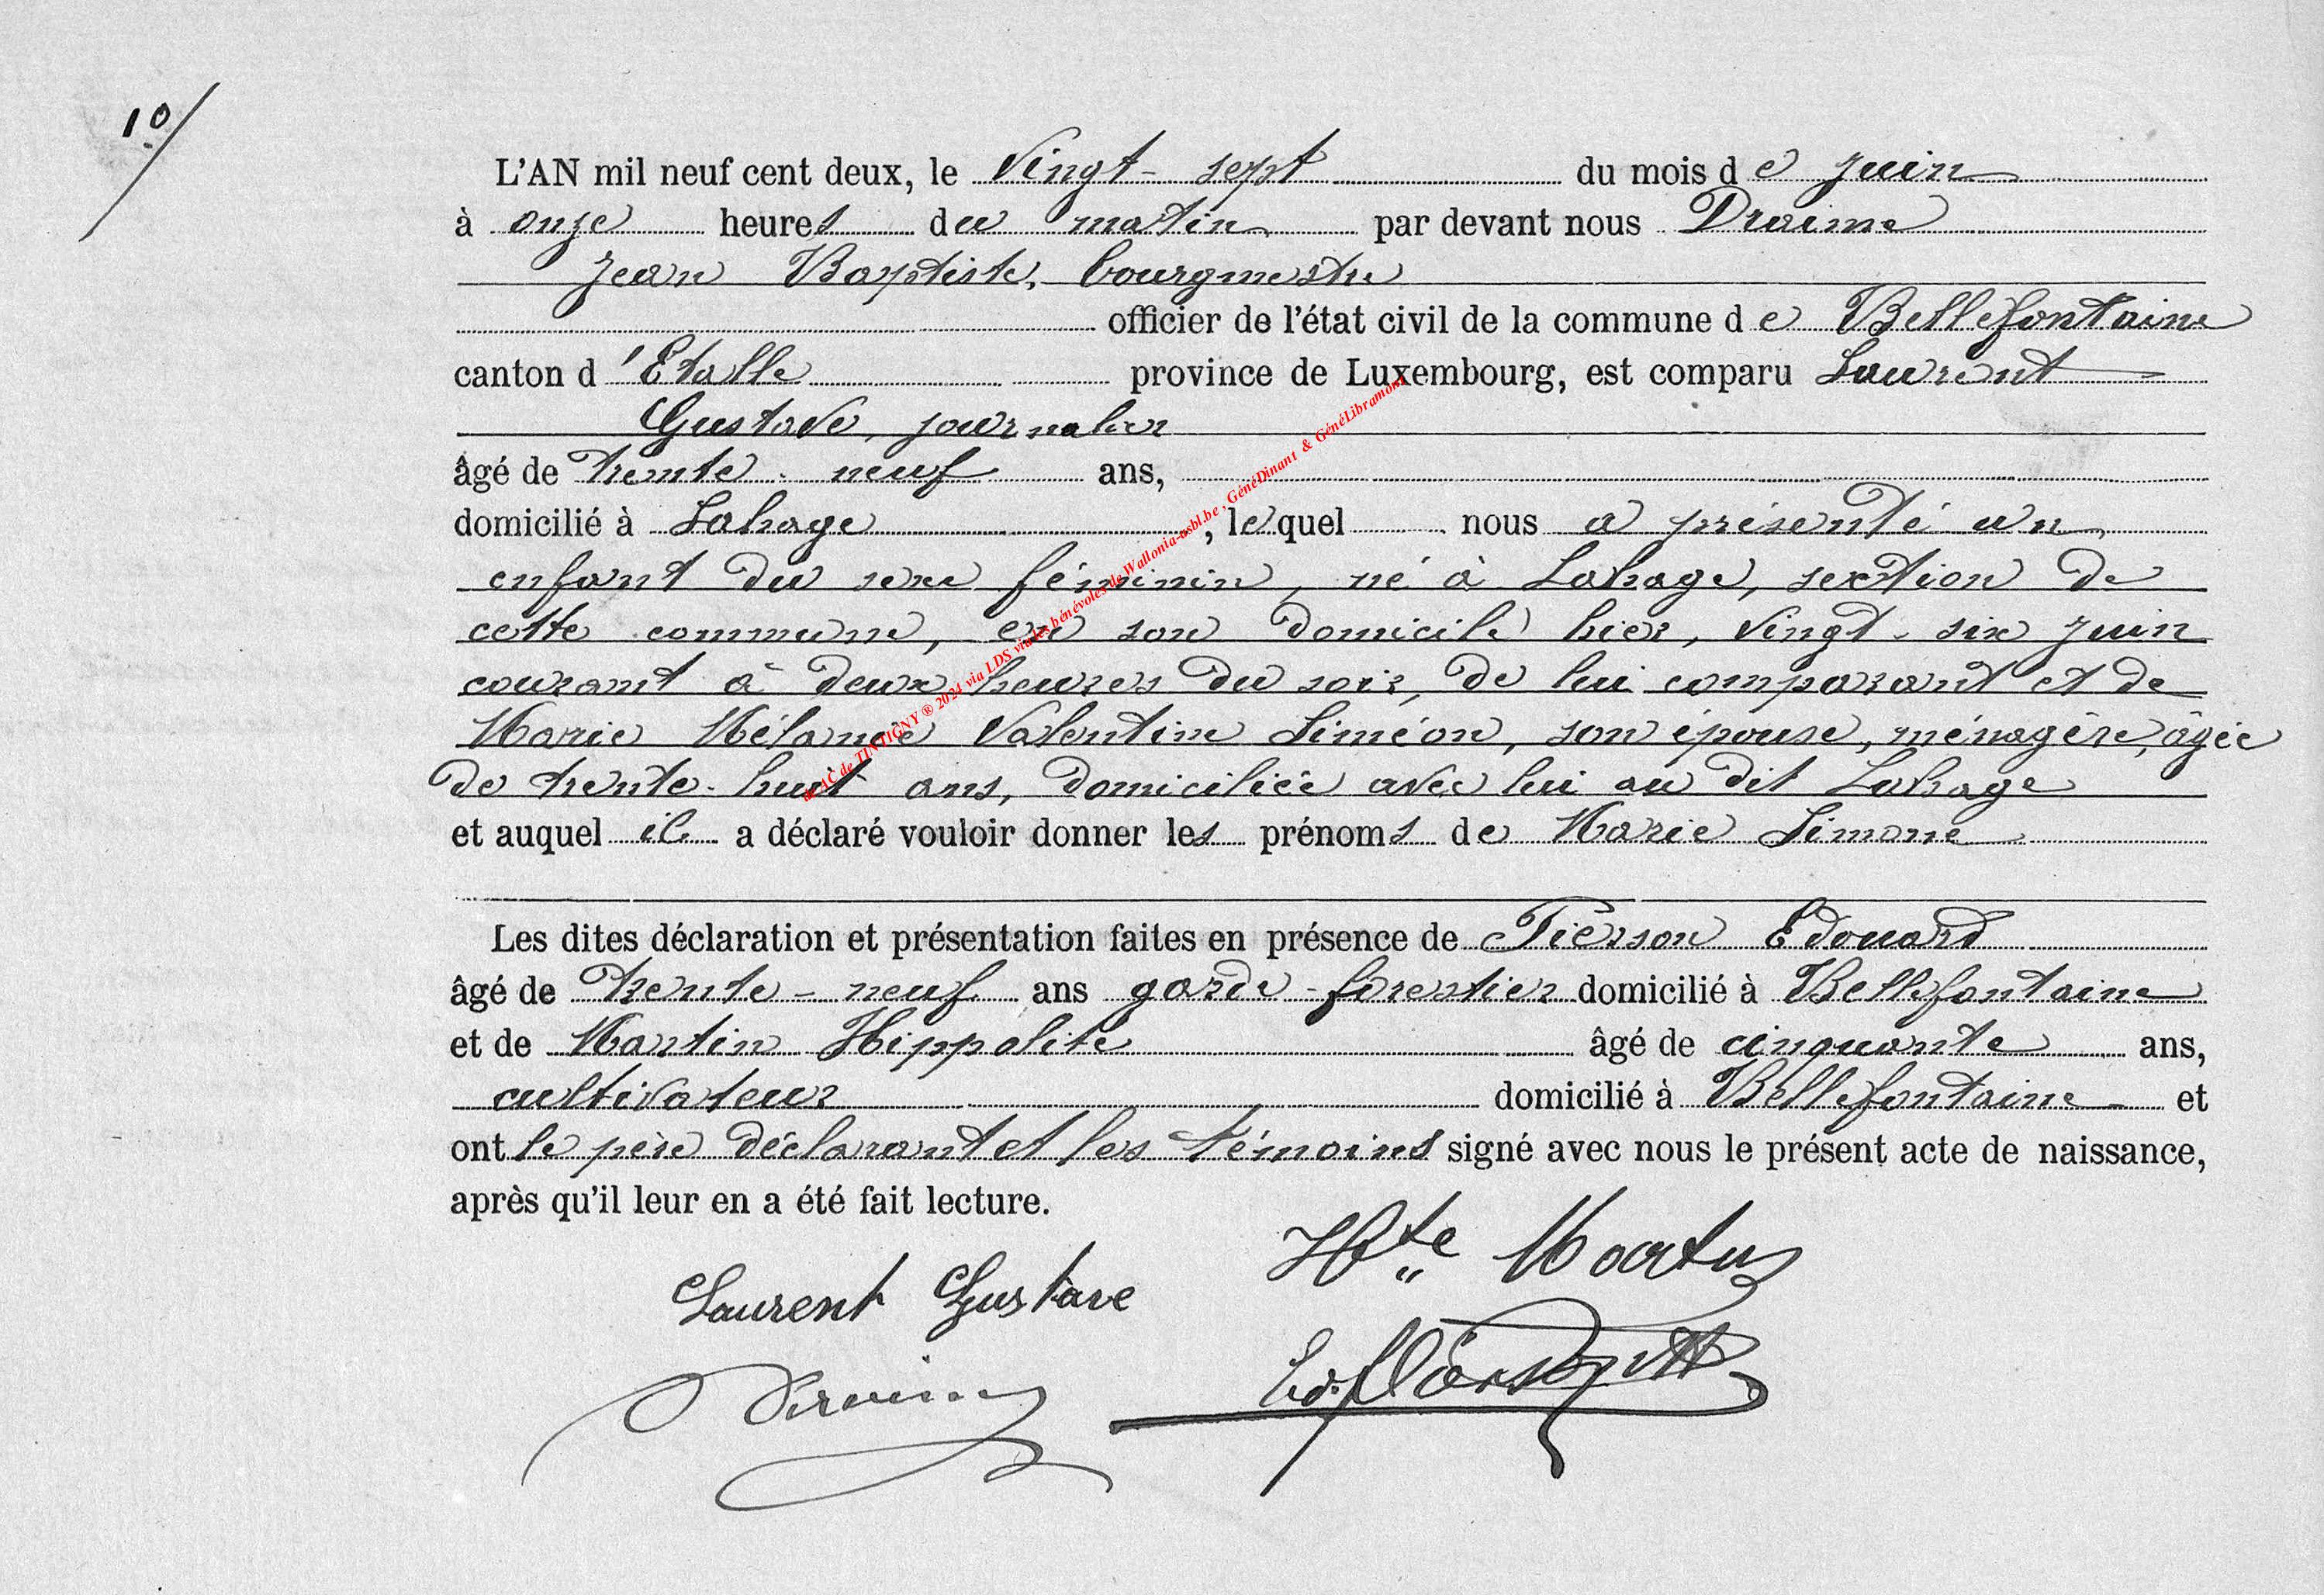 10/
L'AN mil neuf cent deux, le Vingt-sept du mois de Juin
à onze heures du matin par devant nous Draime
Jean Baptiste, bourgmestre
officier de l'état civil de la commune de Bellefontaine
canton d'Etalle province de Luxembourg, est comparu Laurent
Gustave, journalier
âgé de trente-neuf ans,
domicilié à Lahage, lequel nous a présenté un
enfant du sexe féminin, né à Lahage, section de
cette commune, en son domicile hier, vingt-six Juin
courant à deux heures du soir, de lui comparant et de
Marie Mélanie Valentine Siméon, son épouse, ménagère, âgée
de trente-huit ans, domiciliée avec lui au dit Lahage
et auquel il a déclaré vouloir donner les prénoms de Marie Simone
Les dites déclaration et présentation faites en présence de Pierson Edouard
âgé de trente-neuf ans garde-forestier domicilié à Bellefontaine
et de Martin Hippolite âgé de cinquante ans,
cultivateur domicilié à Bellefontaine et
ont le père déclarant et les témoins signé avec nous le présent acte de naissance,
après qu'il leur en a été fait lecture.
Hte Martin
Laurent Gustave
Ed. Pierson
Draime
de AC de TINTIGNY ® 2024 via LDS via les bénévoles de Wallonia-asbl.be, GénéDinant & GénéLibramont